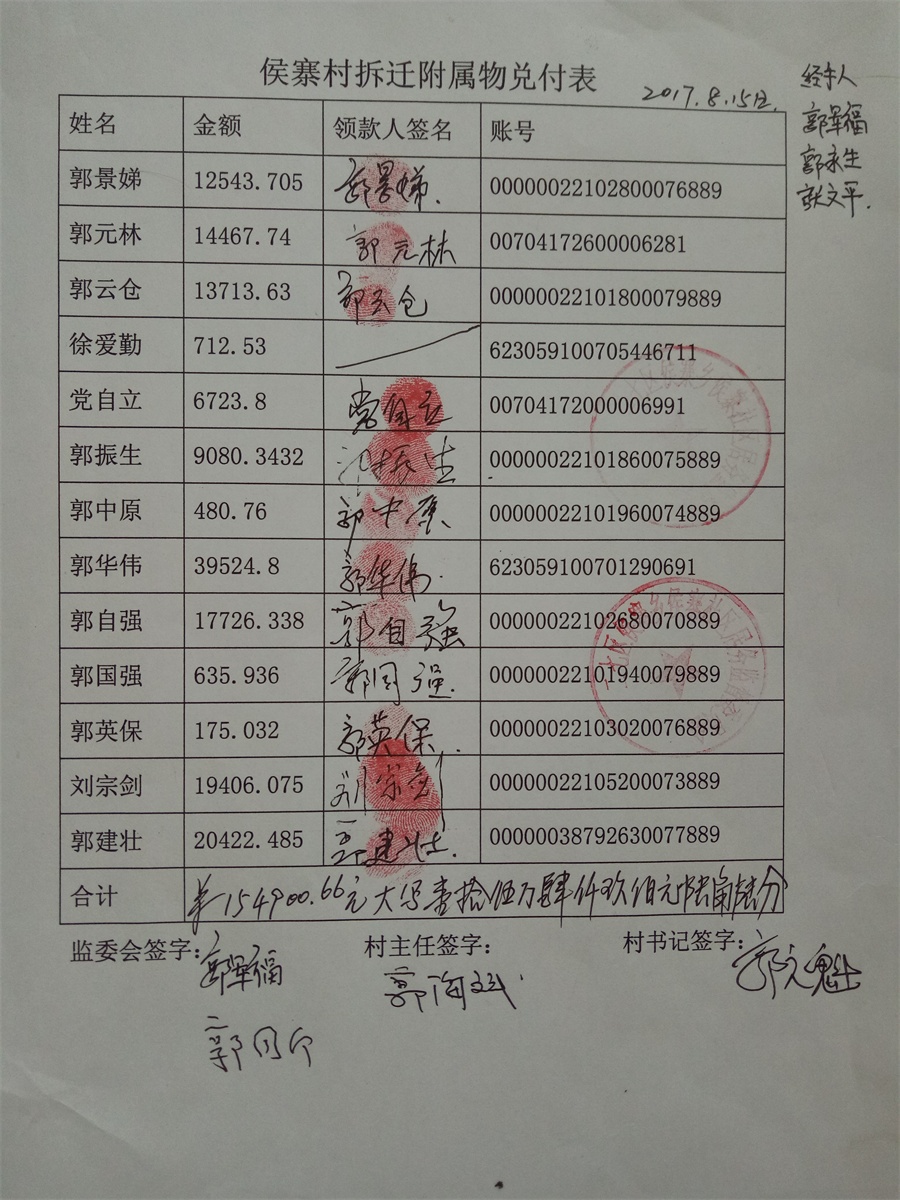 侯寨村拆迁附属物兑付表
2017.8.15日.
经手人
郭军福
郭永生
张文平.
姓名 金额 领款人签名 账号
郭景娣 12543.705 郭景娣. 00000022102800076889
郭元林 14467.74 郭元林 00704172600006281
郭云仓 13713.63 郭云仓 00000022101800079889
徐爱勤 712.53 623059100705446711
党自立 6723.8 党自立 00704172000006991
郭振生 9080.3432 郭振生 00000022101860075889
郭中原 480.76 郭中原 00000022101960074889
郭华伟 39524.8 郭华伟. 623059100701290691
郭自强 17726.338 郭自强 00000022102680070889
郭国强 635.936 郭国强. 00000022101940079889
郭英保 175.032 郭英保.. 00000022103020076889
刘宗剑 19406.075 刘宗剑 00000022105200073889
郭建壮 20422.485 郭建壮. 00000038792630077889
合计 ¥154900.66元大写壹拾伍万肆仟玖佰元陆角陆分
监委会签字: 村主任签字: 村书记签字:
郭军福 郭海斌. 郭元魁
郭